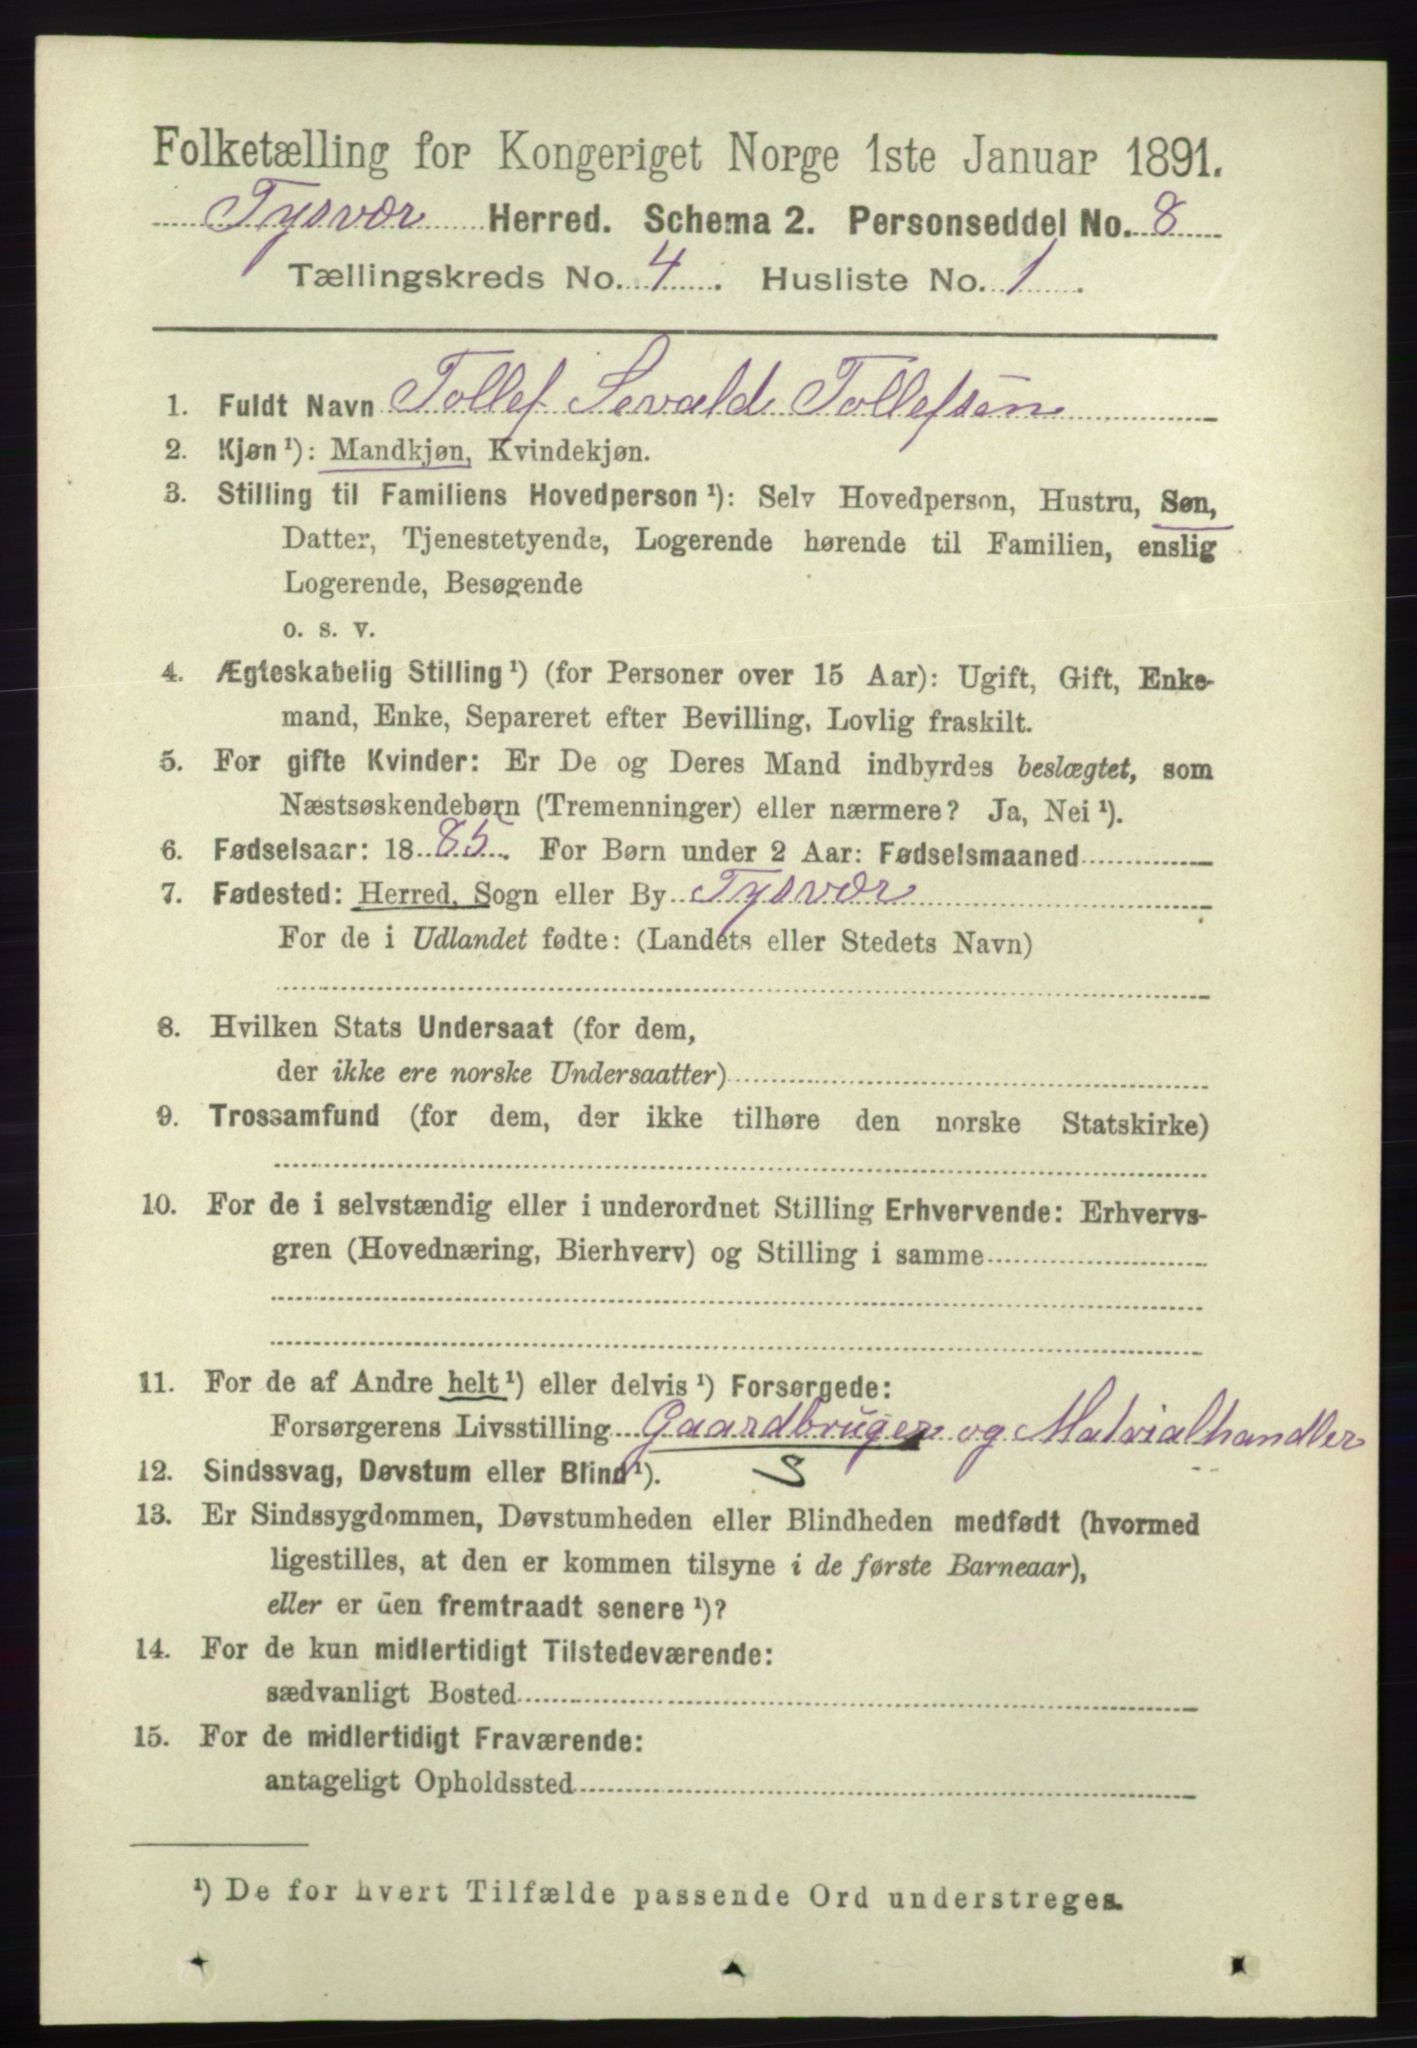 Folketælling for Kongeriget Norge 1ste Januar 1891.
Tysvær Herred. Schema 2. Personseddel No. 8
Tællingskreds No. 4. Husliste No. 1.
1. Fuldt Navn Tollef Sevald Tollefsen
2. Kjøn¹): Mandkjøn, Kvindekjøn.
3. Stilling til Familiens Hovedperson¹): Selv Hovedperson, Hustru, Søn,
Datter, Tjenestetyende, Logerende hørende til Familien, enslig
Logerende, Besøgende
o. s. v.
4. Ægteskabelig Stilling¹) (for Personer over 15 Aar): Ugift, Gift, Enke-
mand, Enke, Separeret efter Bevilling, Lovlig fraskilt.
5. For gifte Kvinder: Er De og Deres Mand indbyrdes beslægtet, som
Næstsøskendebørn (Tremenninger) eller nærmere? Ja, Nei¹).
6. Fødselsaar: 1885. For Børn under 2 Aar: Fødselsmaaned
7. Fødested: Herred, Sogn eller By Tysvær
For de i Udlandet fødte: (Landets eller Stedets Navn)
8. Hvilken Stats Undersaat (for dem,
der ikke ere norske Undersaatter)
9. Trossamfund (for dem, der ikke tilhøre den norske Statskirke)
10. For de i selvstændig eller i underordnet Stilling Erhvervende: Erhvervs-
gren (Hovednæring, Bierhverv) og Stilling i samme
11. For de af Andre helt¹) eller delvis¹) Forsørgede:
Forsørgerens Livsstilling Gaardbruger og Matrialhandler
12. Sindssvag, Døvstum eller Blind¹). S
13. Er Sindssygdommen, Døvstumheden eller Blindheden medfødt (hvormed
ligestilles, at den er kommen tilsyne i de første Barneaar),
eller er den fremtraadt senere¹)?
14. For de kun midlertidigt Tilstedeværende:
sædvanligt Bosted
15. For de midlertidigt Fraværende:
antageligt Opholdssted
¹) De for hvert Tilfælde passende Ord understreges.